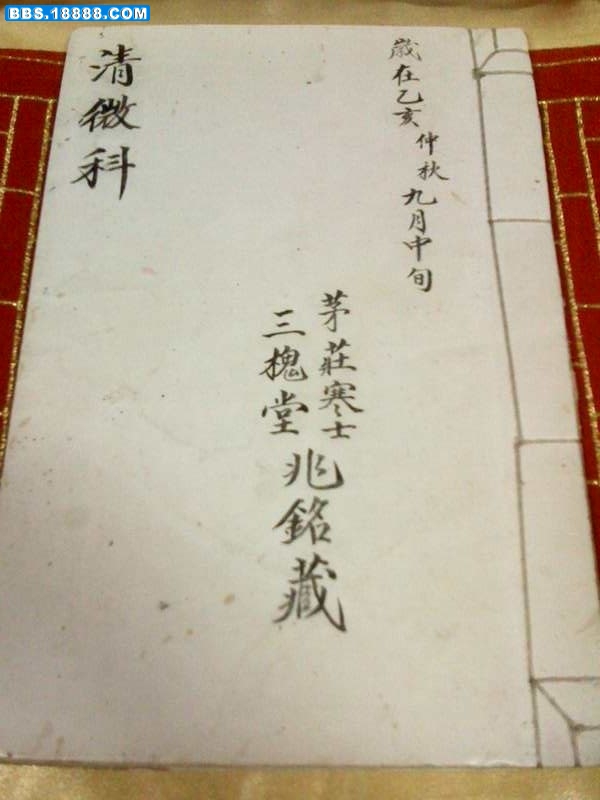 BBS.18888.COM
歲在乙亥仲秋九月中旬
茅莊寒士
三槐堂
兆銘藏
清微科